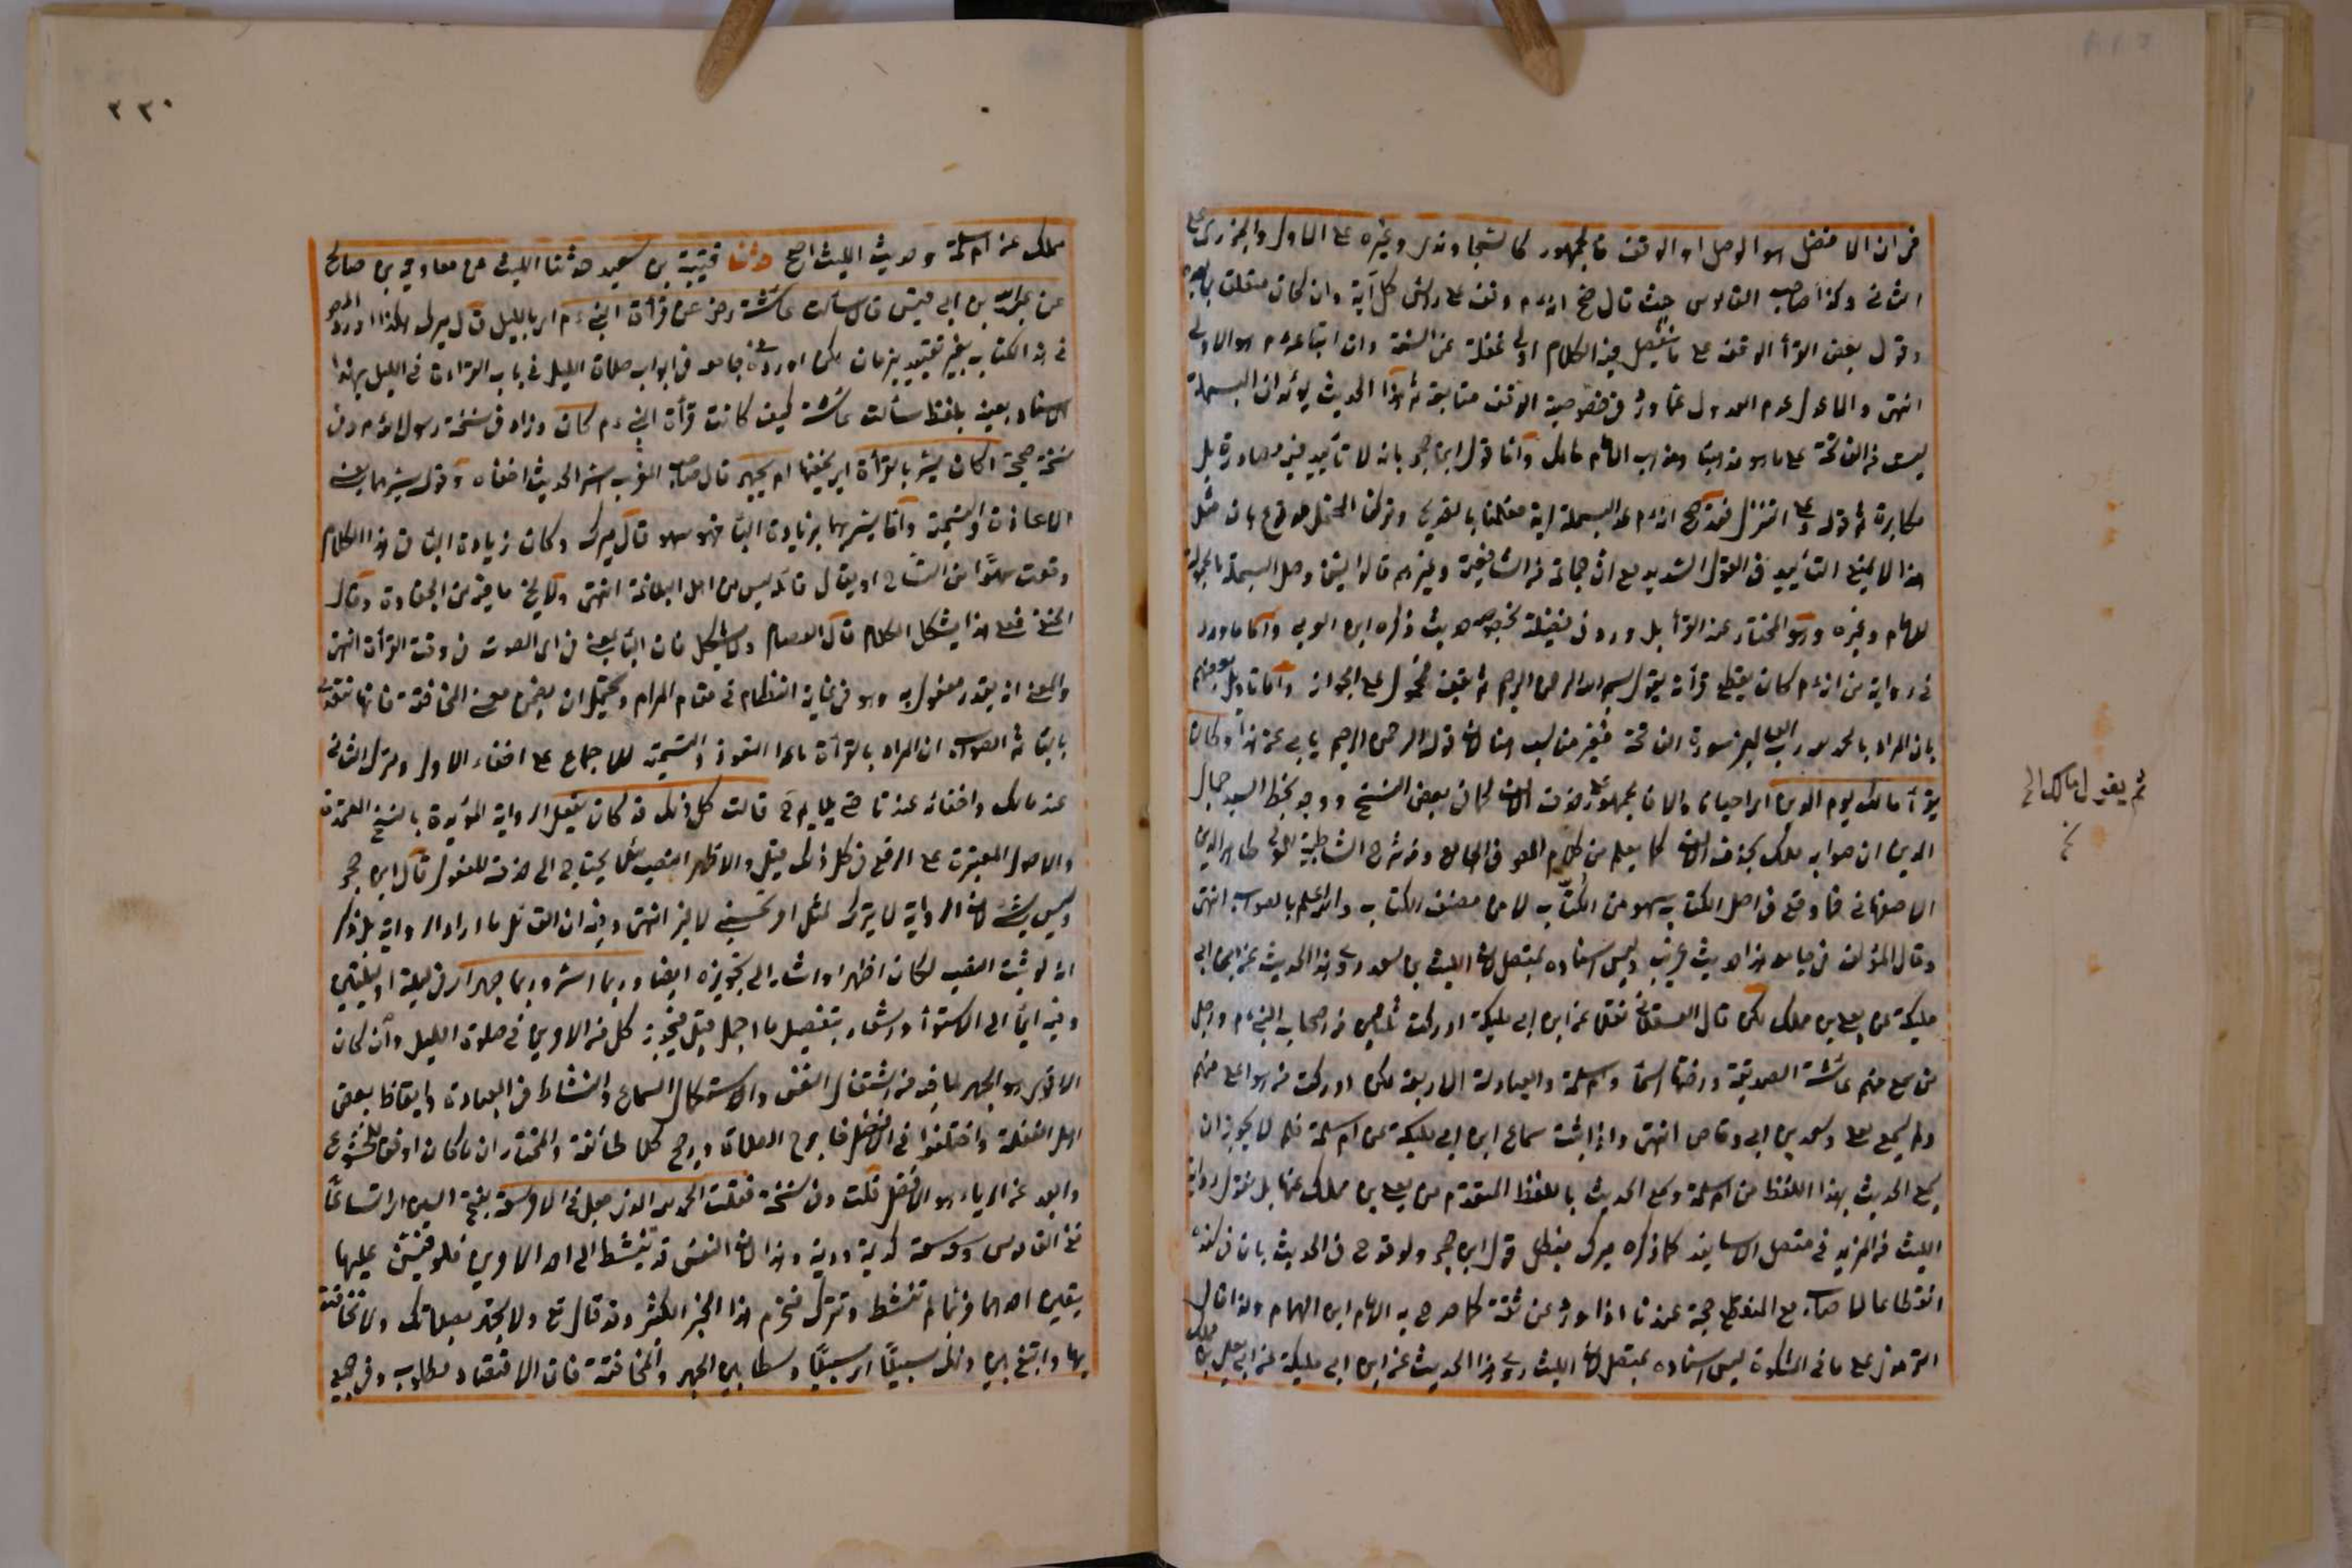 من ان الافضل هو الوصل او الوقف فالجمهور كالسجاوندي وغيره على الاول والجزري على
الثاني وكذا صاحب القاموس حيث قال صح انه م وقف على رؤس كل آية وان كان متعلقا بما بعده
وقول بعض القرأ الوقف على ما ينفصل فيه الكلام اولى غفلة عن السنة وان اتباعه م هو الاولى
انتهى والاعدل عدم العدول عما ورد في خصوصية الوقف متابعة ثم هذا الحديث يؤيد ان البسملة
ليست من الفاتحة على ما هو مذهبنا ومذهب الامام مالك واما قول ابن حجر بانه لا تأييد فيه مصادرة بل
مكابرة ثم قوله وعلى التنزل فقد صح انه م عد البسملة آية فعملنا بالصريح وتركنا المحتمل مدفوع بان مثل
هذا لا يمنع التأييد في القول السديد مع ان جماعة من الشافعية وغيرهم قالوا يسن وصل البسملة بالحمدلة
للامام وغيره وهو المختار عند القرأ بل ورد في فضيلة بخصوصه حديث ذكره ابن العربي واما ما ورد
في رواية من انه م كان يقطع قرأته يقول بسم الله الرحمن الرحيم ثم يقف فمحمول على الجواز واما تاويل بعضهم
بان المراد بالحمد لله رب العالمين سورة الفاتحة فيغير مناسب هنا لان قوله الرحمن الرحيم يابى عن هذا وكان
يقرأ مالك يوم الدين اي احيانا والا فالجمهور على حذف الالف كما في بعض النسخ ووجد بخط السيد جمال
الدين ان صوابه ملك بحذف الالف كما يعلم من كلام المص في الجامع ومن شرح الشاطبية للمولى ظاهر الدين
الاصفهاني فما وقع في اصل الكتاب سهو من الكتاب لا من مصنف الكتاب والله اعلم بالصواب انتهى
وقال المؤلف في جامعه هذا حديث غريب وليس اسناده بمتصل لان الليث بن سعد روى هذا الحديث عن ابن ابي
مليكة عن يعلى بن مملك لكن قال العسقلاني نقلا عن ابن ابي مليكة ادركت ثلاثين من اصحاب النبي م واجل
من سمع منهم عائشة الصديقة واختها اسما وام سلمة والعبادلة الاربعة لكن ادركت من هو اعلى منهم
ولم يسمع على وسعد بن ابي وقاص انتهى واذا ثبت سماع ابن ابي مليكة عن ام سلمة فلم لا يجوز ان
يسمع الحديث بهذا اللفظ من ام سلمة وسمع الحديث باللفظ المتقدم من يعلى بن مملك عنها بل نقول رواية
الليث من المزيد في متصل الاسانيد كما ذكره ميرك فبطل قول ابن حجر ولو قدح في الحديث بان في سنده
انقطاعا لما صح مع المنقطع حجة عندنا اذا ورد عن ثقة كما صرح به الامام ابن الهمام ولذا قال
الترمذي على ما في المشكوة ليس اسناده بمتصل لان الليث روى هذا الحديث عن ابن ابي مليكة عن يعلى بن مملك
ثم يقول مالك الى
٢٣٠
مملك عن ام سلمة وحديث الليث اصح حدثنا قتيبة بن سعيد حدثنا الليث عن معاوية بن صالح
عن عبد الله بن ابي قيس قال سألت عائشة رض عن قرأة النبي ءم اي بالليل قال ميرك هكذا اورده المص
في هذا الكتاب بغير تقييد بزمان لكن اورده في جامعه في ابواب صلاة الليل في باب القراءة في الليل بهذا
الاسناد بعينه بلفظ سألت عائشة كيف كانت قرأة النبي ءم كان وزاد في نسخة رسول الله م وفي
نسخة صحيحة اكان يسر بالقرأة اي يخفيها ام يجهر قال صاحب المغرب اسر الحديث اخفاه وقوله يسرهما يعني
الاعاذة والتسمية واما يسر بهما بزيادة الباء فهو سهو قال ميرك وكان زيادة الباء في هذا الكلام
وقعت سهوا من النساخ او يقال قائله ليس من اهل البلاغة انتهى ولا يخفى ما فيه من الجفاوة وقال
الحنفي فعلى هذا يشكل الكلام قال العصام ولا يشكل فان الباء بمعنى في اي الصوت في وقت القرأة انتهى
والمعنى انه يقدر مفعول به وهو في غاية انتظام في مقام المرام ويحتمل ان يضمن معنى المخافتة فانها تتعدى
بالباء ثم الصواب ان المراد بالقرأة ما عدا التعوذ والتسمية للاجماع على اخفاء الاول وترك الثاني
عند مالك واخفائه عندنا قالت كل ذلك قد كان يفعل الرواية المؤيدة بالنسخ المعتمدة
والاصول المعتبرة على الرفع في كل ذلك قيل والاظهر النصب لئلا يحتاج الى حذف المفعول قال ابن حجر
وليس بشئ لان الرواية لا يترك لمثل امر تحسيني لا غير انتهى وفيه ان القائل ما اراد الرواية بل ذكر
انه لو ثبت النصب لكان اظهر او اشار الى تجويزه ايضا وربما اسر وربما جهر اي في ليلة او ليلتين
وفيه ايماء الى الاستواء واشعار بتفصيل ما اجمل قيل فيجوز كل من الامرين في صلوة الليل وان كان
الافضل هو الجهر لما فيه من اشتغال النفس والاستكمال السماع والنشاط في العبادة وايقاظ بعض
اهل الغفلة واختلفوا في الافضل خارج الصلاة ورجح كلا طائفة والمختار ان ما كان اوفق للخشوع
وابعد عن الرياء هو الافضل قلت وفي نسخة فقلت الحمد لله الذي جعل في الامر سعة بفتح السين اي اتساعا
ففي القاموس وسعه كدية ودية وهذا لان النفس قد تنشط الى احد الامرين فلو ضيق عليها
بتعيين احدهما فربما لم تنشط وتترك فتحرم هذا الخير الكثير وقد قال تع ولا تجهر بصلاتك ولا تخافت
بها وابتغ بين ذلك سبيلا اي سبيلا وسطا بين الجهر والمخافتة فان الاقتصاد مطلوب وفي جميع